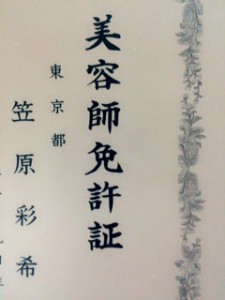 美容師免許証
東京都
笠原彩希